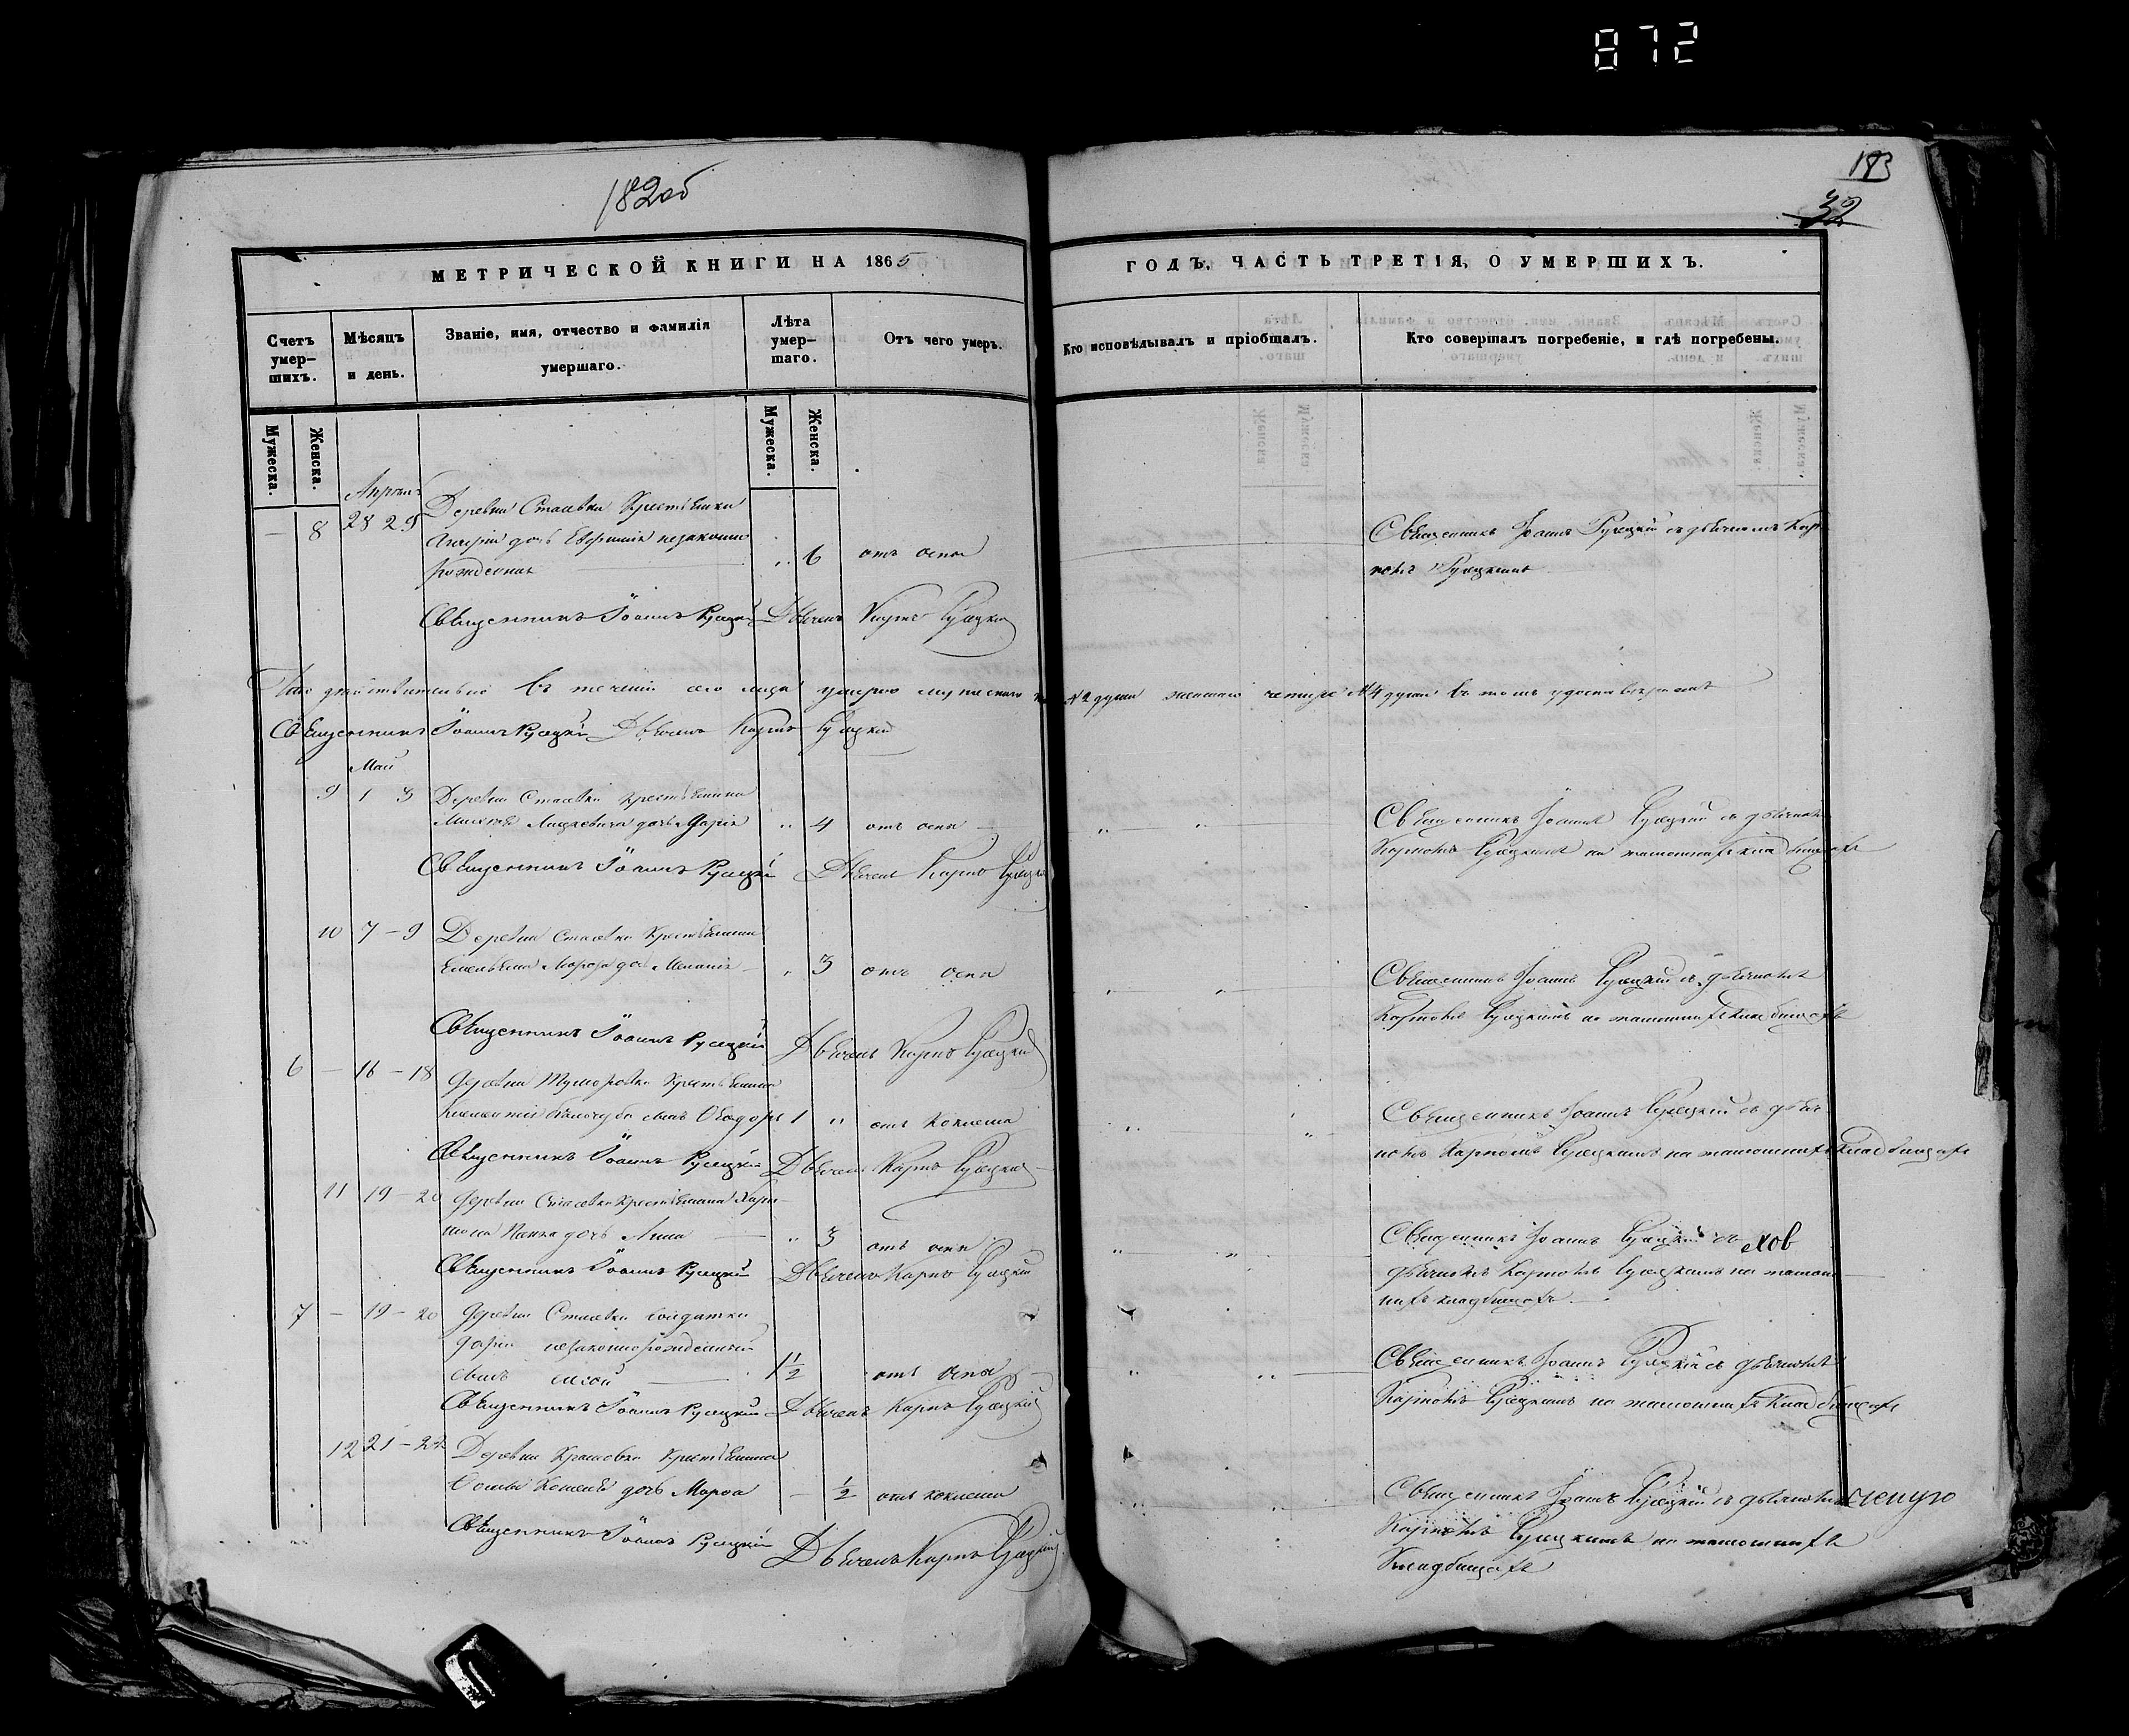 872
182об
183
32
МЕТРИЧЕСКОЙ КНИГИ НА 1865
ГОДЪ, ЧАСТЬ ТРЕТІЯ, О УМЕРШИХЪ.
Счетъ умер-
шихъ.
Мѣсяцъ
и день.
Званіе, имя, отчество и фамилія
умершаго.
Лѣта
умер-
шаго.
Отъ чего умеръ.
Кто исповѣдывалъ и пріобщалъ.
Кто совершалъ погребеніе, и гдѣ погребены.
Мужеска.
Женска.
Мужеска.
Женска.
Апрель
— 8 28 29 Деревни Стаевки Крестьянки
дочь Евфимія незаконно
рожденная „ 6 отъ оспы
Священникъ Іоаннъ Русецкій съ дьячкомъ Кар-
помъ Русецкимъ
Священникъ Іоаннъ Русецкій Дьячекъ Карпъ Русецкій
Что действительно въ теченіи сего умерло мужескаго 2 души женскаго четыре 4 души въ томъ удостоверяемъ
Священникъ Іоаннъ Русецкій Дьячекъ Карпъ Русецкій
Май
9 1 3 Деревни Стаевки крестьянина
дочь Марія „ 4 отъ оспы
Священникъ Іоаннъ Русецкій съ дьячкомъ
Карпомъ Русецкимъ на тамошнихъ кладбищахъ
Священникъ Іоаннъ Русецкій Дьячекъ Карпъ Русецкій
10 7 — 9 Деревни Стаевки Крестьянина
Емельяна Мороза дочь Меланія „ 3 отъ оспы
Священникъ Іоаннъ Русецкій съ дьячкомъ
Карпомъ Русецкимъ на тамошнихъ кладбищахъ
Священникъ Іоаннъ Русецкій Дьячекъ Карпъ Русецкій
6 — 16 — 18 Деревни Крестьянина
сынъ Ѳеодоръ 1 „ отъ коклюша
Священникъ Іоаннъ Русецкій съ дьяч-
комъ Карпомъ Русецкимъ на тамошнихъ кладбищахъ
Священникъ Іоаннъ Русецкій Дьячекъ Карпъ Русецкій
11 19 — 20 Деревни Стаевки Крестьянина Хари-
тона дочь Анна „ 3 отъ оспы
Священникъ Іоаннъ Русецкій съ
дьячкомъ Карпомъ Русецкимъ на тамош-
нихъ кладбищахъ
Священникъ Іоаннъ Русецкій Дьячекъ Карпъ Русецкій
7 — 19 — 20 Деревни Стаевки солдатки
Дарьи незаконнорожденный
сынъ 1 1/2 отъ оспы
Священникъ Іоаннъ Русецкій съ дьячкомъ
Карпомъ Русецкимъ на тамошнихъ кладбищахъ
Священникъ Іоаннъ Русецкій Дьячекъ Карпъ Русецкій
12 21 — 22 Деревни Крестьянина
Ѳомы дочь Марѳа — 1/2 отъ коклюша
Священникъ Іоаннъ Русецкій съ дьячкомъ
Карпомъ Русецкимъ на тамошнихъ
Кладбищахъ
Священникъ Іоаннъ Русецкій Дьячекъ Карпъ Русецкій